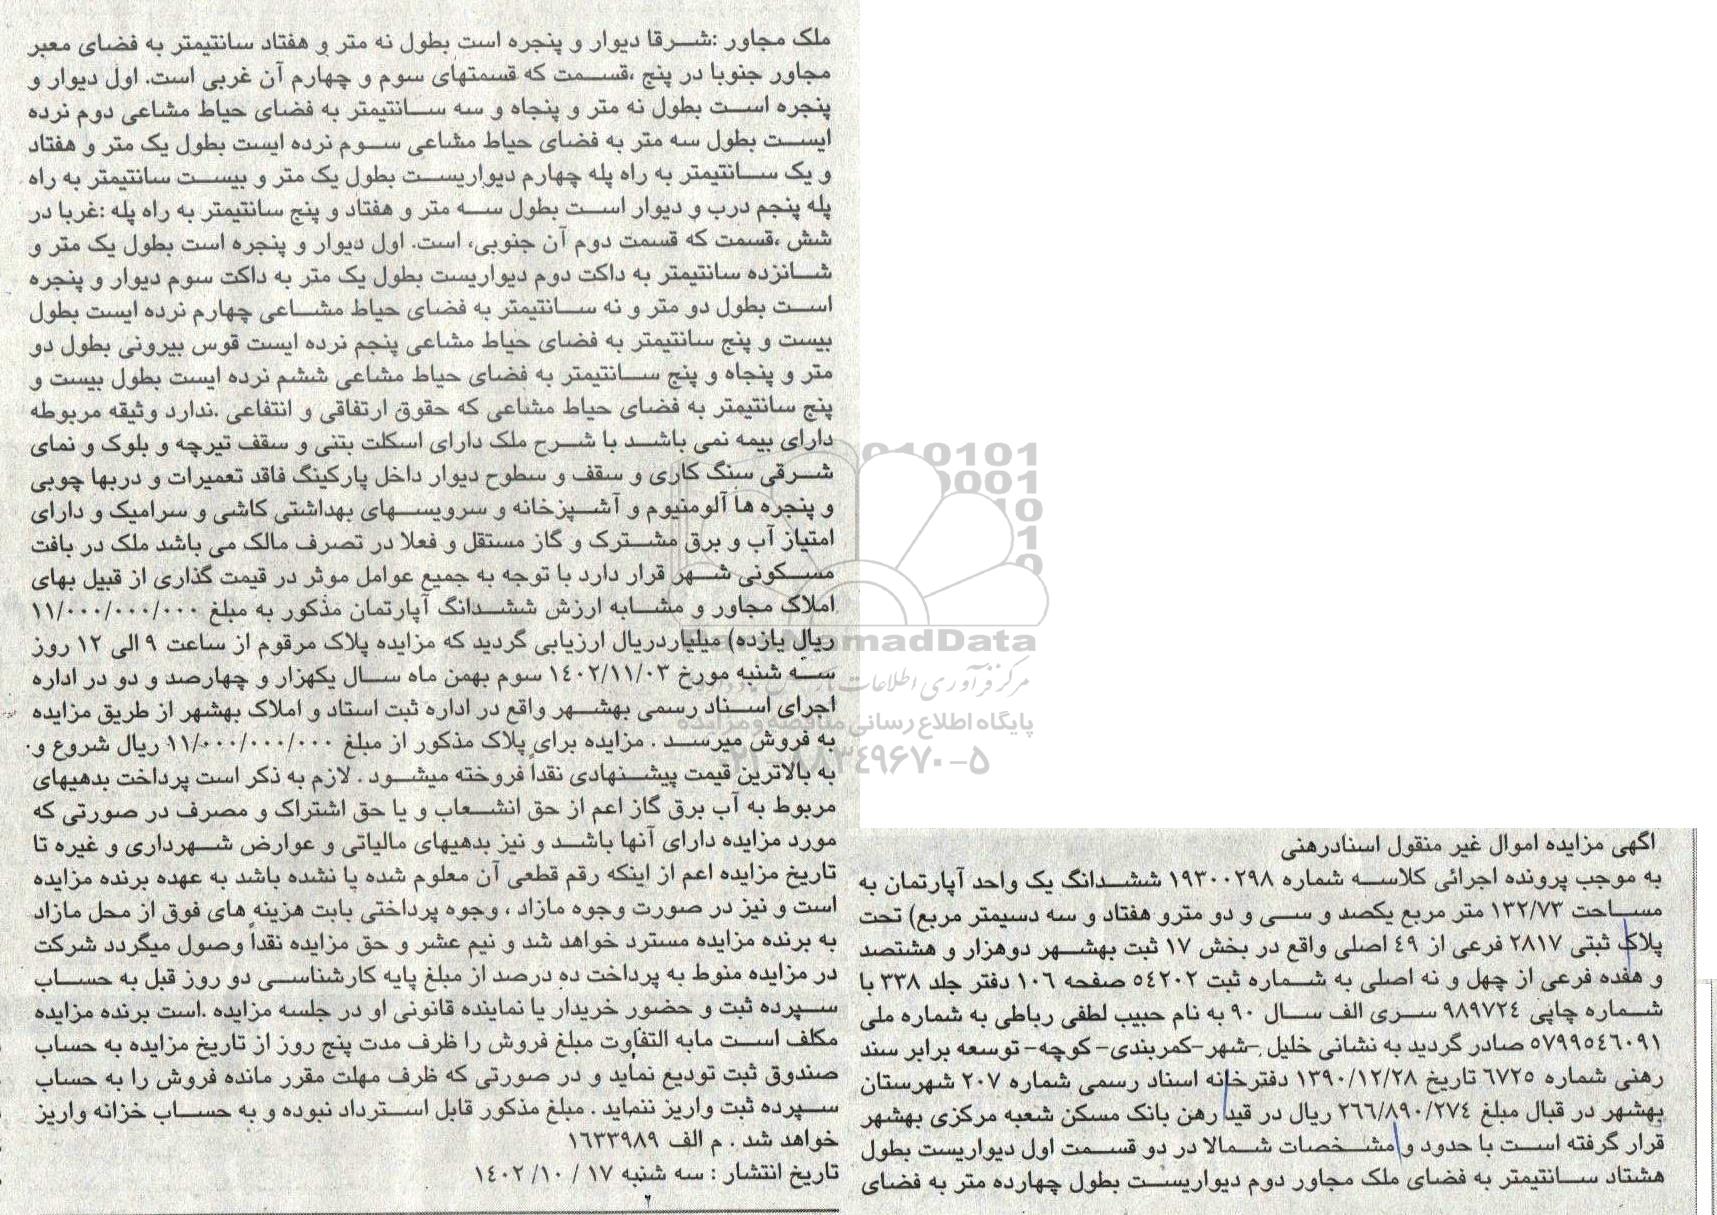 آگهی مزایده اموال غیر منقول اسنادرهنی
به موجب پرونده اجرائی کلاسه شماره ۱۹۳۰۰۲۹۸ ششدانگ یک واحد آپارتمان به
مساحت ۱۳۲/۷۳ متر مربع یکصد و سی و دو مترو هفتاد و سه دسیمتر مربع) تحت
پلاک ثبتی ۲۸۱۷ فرعی از ٤۹ اصلی واقع در بخش ۱۷ ثبت بهشهر دوهزار و هشتصد
و هفده فرعی از چهل و نه اصلی به شماره ثبت ٥٤۲۰۲ صفحه ۱۰٦ دفتر جلد ۳۳۸ با
شماره چاپی ۹۸۹۷۲٤ سری الف سال ۹۰ به نام حبیب لطفی رباطی به شماره ملی
٥۷۹۹٥٤٦۰۹۱ صادر گردید به نشانی خلیل -شهر-کمربندی- کوچه- توسعه برابر سند
رهنی شماره ٦۷۲٥ تاریخ ۱۳۹۰/۱۲/۲۸ دفترخانه اسناد رسمی شماره ۲۰۷ شهرستان
بهشهر در قبال مبلغ ۲٦٦/۸۹۰/۲۷٤ ریال در قید رهن بانک مسکن شعبه مرکزی بهشهر
قرار گرفته است با حدود و مشخصات شمالا در دو قسمت اول دیواریست بطول
هشتاد سانتیمتر به فضای ملک مجاور دوم دیواریست بطول چهارده متر به فضای
ملک مجاور :شرقا دیوار و پنجره است بطول نه متر و هفتاد سانتیمتر به فضای معبر
مجاور جنوبا در پنج ،قسمت که قسمتهای سوم و چهارم آن غربی است. اول دیوار و
پنجره است بطول نه متر و پنجاه و سه سانتیمتر به فضای حیاط مشاعی دوم نرده
ایست بطول سه متر به فضای حیاط مشاعی سوم نرده ایست بطول یک متر و هفتاد
و یک سانتیمتر به راه پله چهارم دیواریست بطول یک متر و بیست سانتیمتر به راه
پله پنجم درب و دیوار است بطول سه متر و هفتاد و پنج سانتیمتر به راه پله :غربا در
شش ،قسمت که قسمت دوم آن جنوبی، است. اول دیوار و پنجره است بطول یک متر و
شانزده سانتیمتر به داکت دوم دیواریست بطول یک متر به داکت سوم دیوار و پنجره
است بطول دو متر و نه سانتیمتر به فضای حیاط مشاعی چهارم نرده ایست بطول
بیست و پنج سانتیمتر به فضای حیاط مشاعی پنجم نرده ایست قوس بیرونی بطول دو
متر و پنجاه و پنج سانتیمتر به فضای حیاط مشاعی ششم نرده ایست بطول بیست و
پنج سانتیمتر به فضای حیاط مشاعی که حقوق ارتفاقی و انتفاعی .ندارد وثیقه مربوطه
دارای بیمه نمی باشد با شرح ملک دارای اسکلت بتنی و سقف تیرچه و بلوک و نمای
شرقی سنگ کاری و سقف و سطوح دیوار داخل پارکینگ فاقد تعمیرات و دربها چوبی
و پنجره ها آلومنیوم و آشپزخانه و سرویسهای بهداشتی کاشی و سرامیک و دارای
امتیاز آب و برق مشترک و گاز مستقل و فعلا در تصرف مالک می باشد ملک در بافت
مسکونی شهر قرار دارد با توجه به جمیع عوامل موثر در قیمت گذاری از قبیل بهای
املاک مجاور و مشابه ارزش ششدانگ آپارتمان مذکور به مبلغ ۱۱/۰۰۰/۰۰۰/۰۰۰
ریال یازده) میلیاردریال ارزیابی گردید که مزایده پلاک مرقوم از ساعت ۹ الی ۱۲ روز
سه شنبه مورخ ۱٤۰۲/۱۱/۰۳ سوم بهمن ماه سال یکهزار و چهارصد و دو در اداره
اجرای اسناد رسمی بهشهر واقع در اداره ثبت استاد و املاک بهشهر از طریق مزایده
به فروش میرسد . مزایده برای پلاک مذکور از مبلغ ۱۱/۰۰۰/۰۰۰/۰۰۰ ریال شروع و.
به بالاترین قیمت پیشنهادی نقداً فروخته میشود . لازم به ذکر است پرداخت بدهیهای
مربوط به آب برق گاز اعم از حق انشعاب و یا حق اشتراک و مصرف در صورتی که
مورد مزایده دارای آنها باشد و نیز بدهیهای مالیاتی و عوارض شهرداری و غیره تا
تاریخ مزایده اعم از اینکه رقم قطعی آن معلوم شده یا نشده باشد به عهده برنده مزایده
است و نیز در صورت وجوه مازاد ، وجوه پرداختی بابت هزینه های فوق از محل مازاد
به برنده مزایده مسترد خواهد شد و نیم عشر و حق مزایده نقداً وصول میگردد شرکت
در مزایده منوط به پرداخت ده درصد از مبلغ پایه کارشناسی دو روز قبل به حساب
سپرده ثبت و حضور خریدار یا نماینده قانونی او در جلسه مزایده .است برنده مزایده
مکلف است مابه التفاوت مبلغ فروش را ظرف مدت پنج روز از تاریخ مزایده به حساب
صندوق ثبت تودیع نماید و در صورتی که ظرف مهلت مقرر مانده فروش را به حساب
سپرده ثبت واریز ننماید . مبلغ مذکور قابل استرداد نبوده و به حساب خزانه واریز
خواهد شد . م الف ۱٦۳۳۹۸۹
تاریخ انتشار : سه شنبه ۱۷ / ۱۰/ ۱٤۰۲
۲
ParsNamadData
پایگاه اطلاع رسانی مناقصه و مزایده
۰۲۱-۸۸۳۴۹۶۷۰-۵